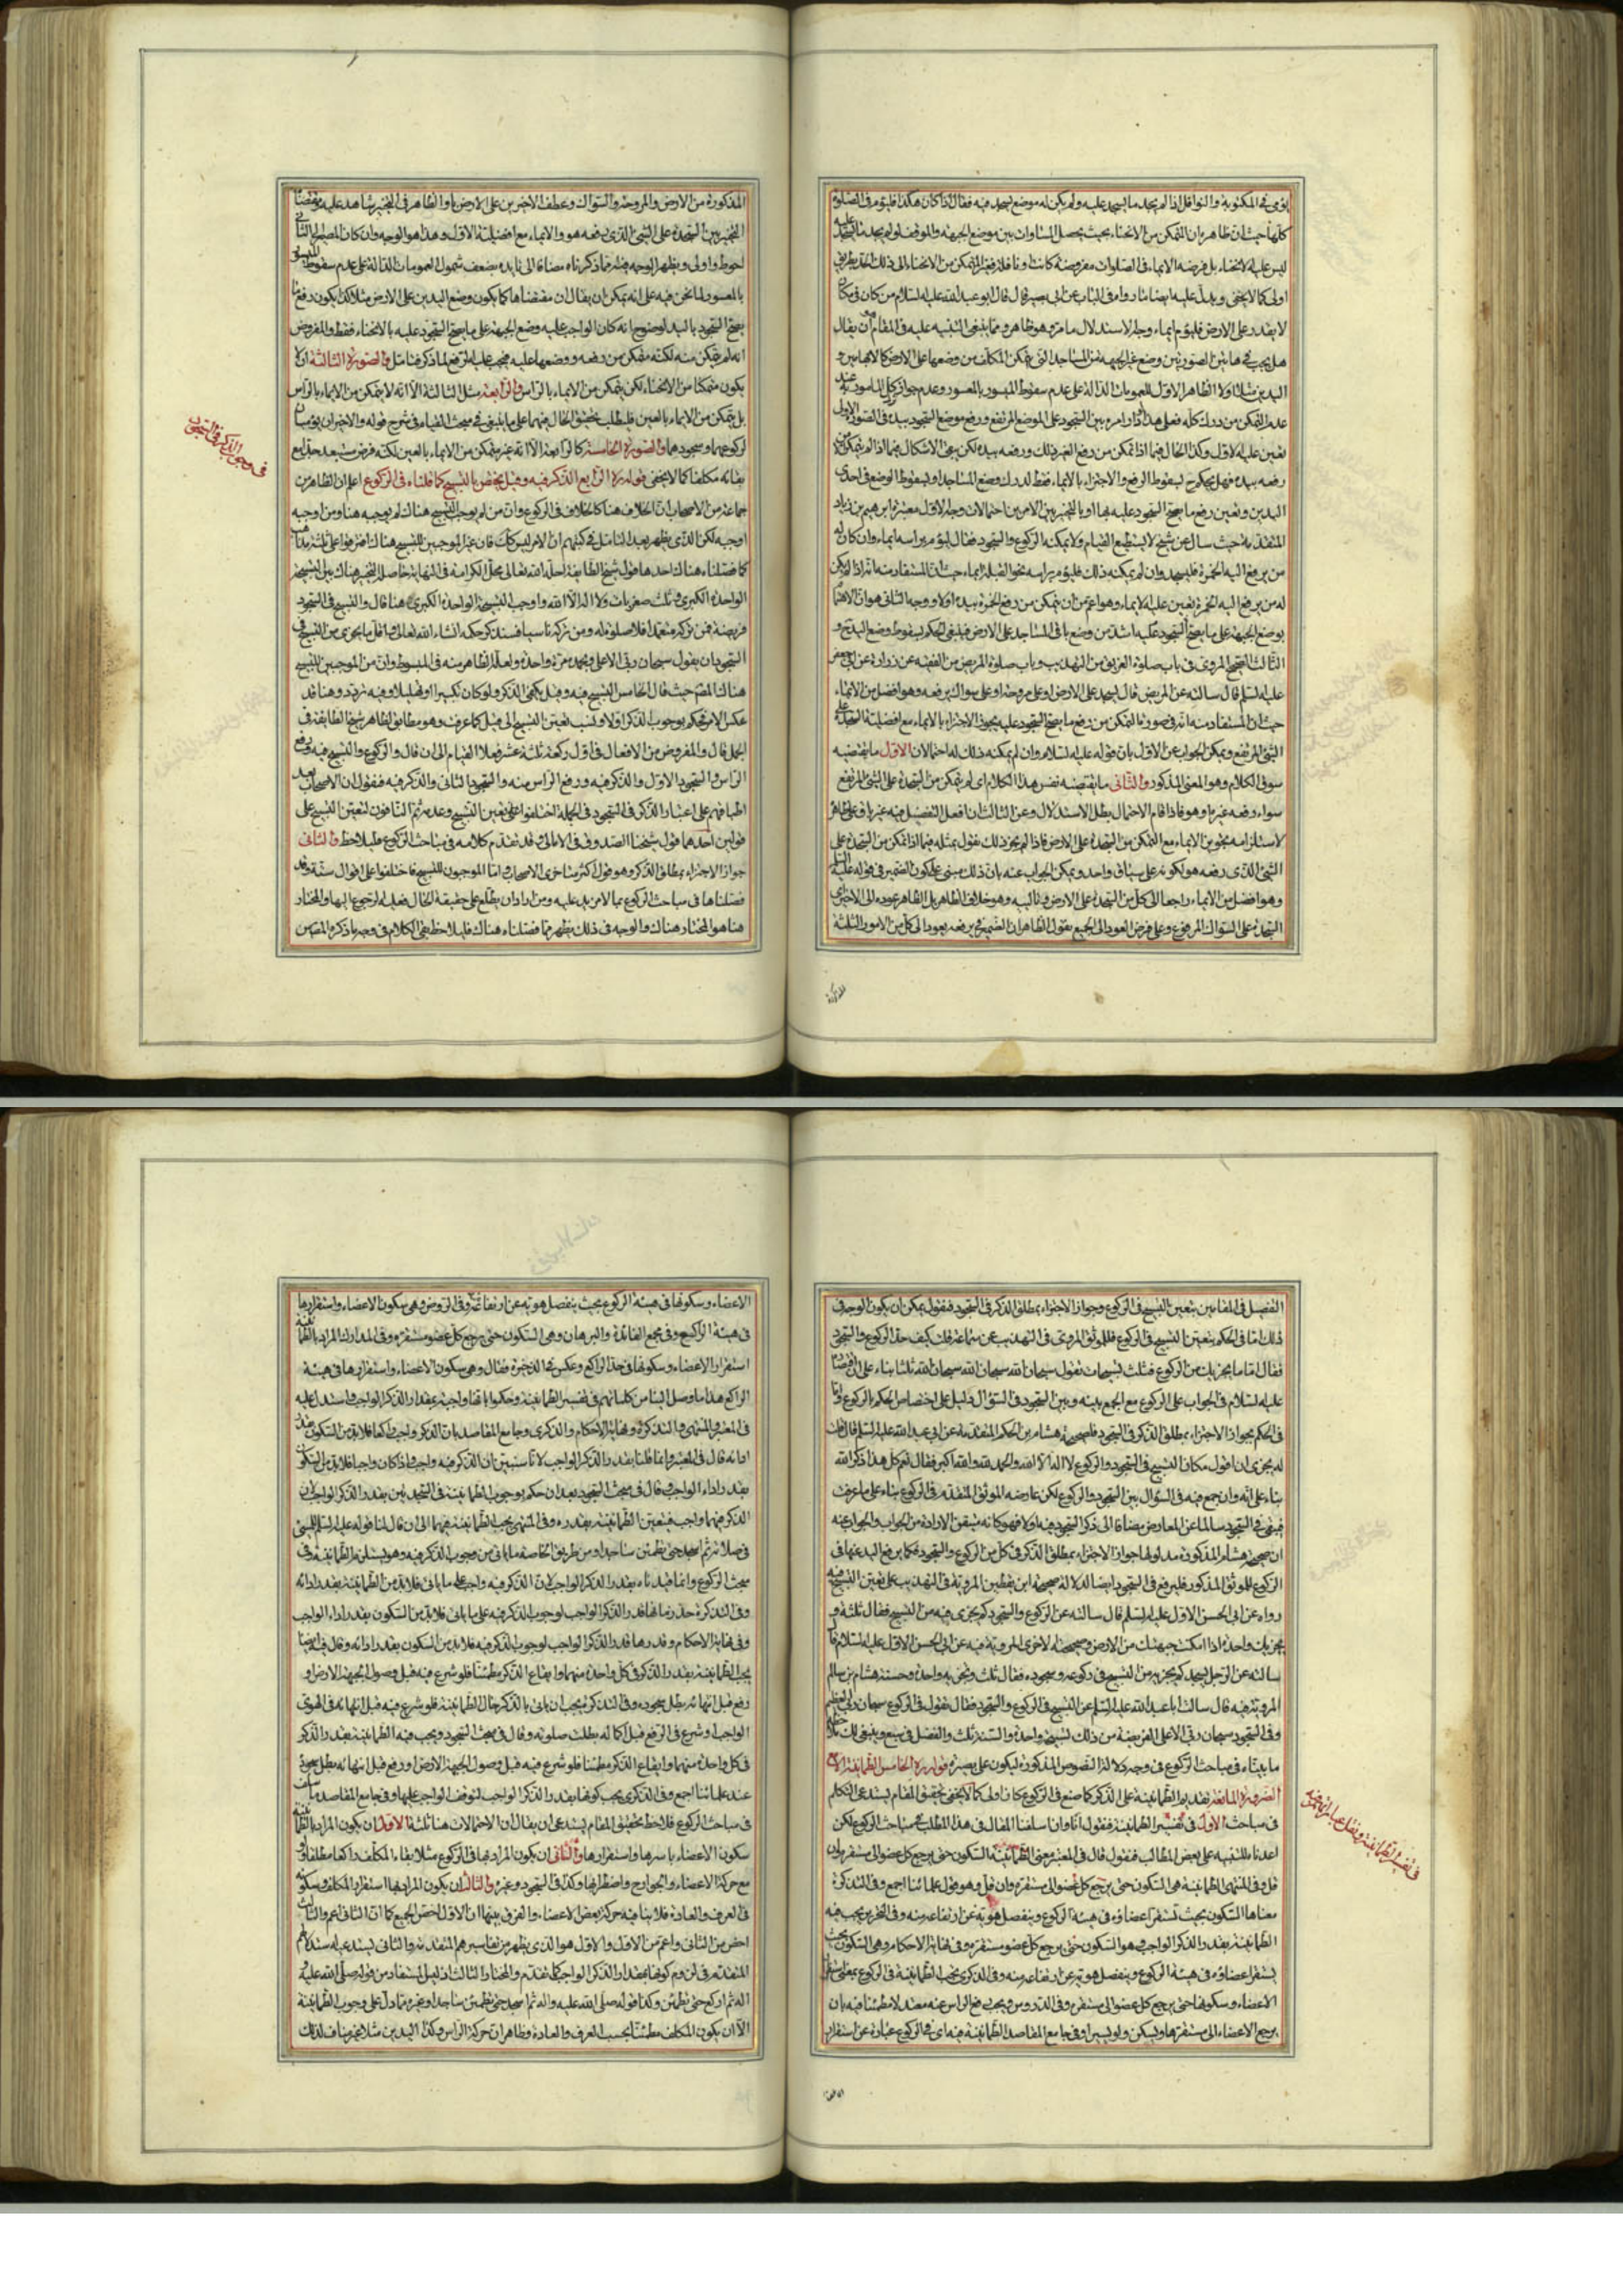 يؤمي في المكتوبة والنوافل اذا لم يجد ما يسجد عليه ولم يكن له موضع يسجد فيه فقال اذا كان هكذا فليؤم في الصلوة
كلها حيث ان ظاهره ان التمكن من الانحناء بحيث يحصل المساوات بين موضع الجبهة والموقف لو لم يجد ما يسجد عليه
ليس عليه الانحناء بل فرضه الايماء في الصلوات مفروضة كانت او نافلة فغير المتمكن من الانحناء الى ذلك الحد بطريق
اولى كما لا يخفى ويدل عليه ايضا ما رواه في الباب عن ابي بصير قال قال ابو عبد الله عليه السلام من كان في مكان
لا يقدر على الارض فليؤم ايماء وجه الاستدلال ما مر وهو ظاهر ومما ينبغي التنبيه عليه في المقام هو ان يقال
هل يجب في هاتين الصورتين وضع غير الجبهة من المساجد التي يتمكن المكلف من وضعها على الارض كالابهامين و
اليدين مثلا اولا الظاهر الاول للعمومات الدالة على عدم سقوط الميسور بالمعسور وعدم جواز ترك المامور به عند
عدم التمكن من درك كله فعلى هذا اذا دار امره بين السجود على الموضع المرتفع ورفع موضع السجود بيده في الصورة الاولى
تعين عليه الاول وكذا الحال فيما اذا تمكن من رفع الغير ذلك ورفعه بيده لكن يبقى الاشكال فيما اذا لم يتمكن الا من
رفعه بيده فهل يحكم ح بسقوط الرفع والاجتزاء بالايماء فقط لدرك وضع المساجد او بسقوط الوضع في احدى
اليدين وتعين رفع ما يصح السجود عليه بها او بالتخيير بين الامرين احتمالات وجه الاول معتبرة ابرهيم بن زياد
المتقدمة حيث سال عن شيخ لا يستطيع القيام ولا يمكنه الركوع والسجود فقال ليؤم براسه ايماء وان كان له
من يرفع اليه الخمرة فليسجد وان لم يمكنه ذلك فليؤم براسه نحو القبلة ايماء حيث ان المستفاد منه انه اذا لم يكن
له من يرفع اليه الخمرة تعين عليه الايماء وهو اعم من ان يتمكن من رفع الخمرة بيده اولا ووجه الثاني هو ان الاهتمام
بوضع الجبهة على ما يصح السجود عليه اشد من وضع باقي المساجد على الارض فينبغي الحكم بسقوط وضع اليد ح و
الثالث الصحيح المروي في باب صلوة الغريق من التهذيب وباب صلوة المريض من الفقيه عن زرارة عن ابي جعفر
عليه السلم قال سالته عن المريض قال يسجد على الارض او على مروحة او على سواك يرفعه وهو افضل من الايماء
حيث ان المستفاد منه انه في صورة التمكن من رفع ما يصح السجود عليه يجوز الاجتزاء بالايماء مع افضلية السجدة على
الشئ المرتفع ويمكن الجواب عن الاول بان قوله عليه السلام وان لم يمكنه ذلك له احتمالان الاول ما يقتضيه
سوق الكلام وهو المعنى المذكور والثاني ما يقتضيه نفس هذا الكلام اى لم يتمكن من السجدة على الشئ المرتفع
سواء رفعه غيره او هو فاذا قام الاحتمال بطل الاستدلال وعن الثالث ان افعل التفضيل فيه غير باق على ظاهره
لاستلزامه تجويز الايماء مع التمكن من السجدة على الارض فاذا لم يجز ذلك نقول بمثله فيما اذا تمكن من السجدة على
الشئ الذي رفعه هو لكونه على سياق واحد ويمكن الجواب عنه بان ذلك مبني على كون الضمير في قوله عليه السلم
وهو افضل من الايماء راجعا الى كل من السجدة على الارض وتالييه وهو خلاف الظاهر بل الظاهر عوده الى الاخير اى
السجدة على السواك المرفوع وعلى فرض العود الى الجميع نقول الظاهر ان الضمير في يرفعه يعود الى كل من الامور الثلثة
المذكورة
المذكورة من الارض والمروحة والسواك وعطف الاخيرين على الارض باو الظاهر في التخيير شاهد عليه ومقتضاه
التخيير بين السجدة على الشئ الذي يرفعه هو والايماء مع افضلية الاول وهذا هو الوجه وان كان المصير الى الثاني
احوط واولى ويظهر الوجه فيه مما ذكرناه مضافا الى تاييده بضعف شمول العمومات الدالة على عدم سقوط الميسور
بالمعسور لما نحن فيه على انه يمكن ان يقال ان مقتضاها كما يكون وضع اليدين على الارض مثلا كذا يكون رفع ما
يصح السجود باليد لوضوح انه كان الواجب عليه وضع الجبهة على ما يصح السجود عليه بالانحناء فقط والمفروض
انه لم يتمكن منه لكنه متمكن من رفعه ووضعها عليه فيجب عليه الرفع لما ذكر فتامل والصورة الثالثة ان لا
يكون متمكنا من الانحناء لكن يتمكن من الايماء بالراس والرابعة مثل الثالثة الا انه لا يتمكن من الايماء بالراس
بل يتمكن من الايماء بالعين فليطلب تحقيق الحال فيهما على ما ينبغي في مبحث القيام في شرح قوله والاخيران يؤميان
لركوعهما وسجودهما والصورة الخامسة كالرابعة الا انه غير متمكن من الايماء بالعين لكنه فرض مستبعد جدا مع
بقائه مكلفا كما لا يخفى قوله ره الرابع الذكر فيه وقيل يختص بالتسبيح كما قلناه في الركوع اعلم ان الظاهر من
جماعة من الاصحاب ان الخلاف هنا كالخلاف في الركوع وان من لم يوجب التسبيح هناك لم يوجبه هنا ومن اوجبه
اوجبه لكن الذي يظهر بعد التامل في كتبهم ان الامر ليس كك فان غير الموجبين للتسبيح هناك افترقوا على ثلثة مذاهب
كما فصلناه هناك احدها قول شيخ الطائفة احله الله تعالى محل الكرامة في النهاية حاصله التخيير هناك بين تسبيحة
الواحدة الكبرى وثلث صغريات ولا اله الا الله واوجب التسبيحة الواحدة الكبرى هنا قال والتسبيح في السجود
فريضة فمن تركه متعمدا فلا صلوة له ومن تركه ناسيا فسنذكر حكمه انشاء الله تعالى واقل ما يجزي من التسبيح في
السجود ان يقول سبحان ربي الاعلى وبحمده مرة واحدة ولعل الظاهر منه في المبسوط وان من الموجبين للتسبيح
هناك المصنف حيث قال الخامس التسبيح فيه وقيل يكفي الذكر ولو كان تكبيرا او تهليلا وفيه تردد وهنا قد
عكس الامر فحكم بوجوب الذكر اولا ونسب تعيين التسبيح الى قيل كما عرفت وهو مطابق لظاهر شيخ الطائفة في
الجمل قال والمفروض من الافعال في اول ركعة ثلثة عشر فعلا القيام الى ان قال والركوع والتسبيح فيه ورفع
الراس والسجود الاول والذكر فيه ورفع الراس منه والسجود الثاني والذكر فيه فنقول ان الاصحاب بعد
اطباقهم على اعتبار الذكر في السجود في الجملة اختلفوا في تعيين التسبيح وعدمه ثم النافون لتعين التسبيح على
قولين احدهما قول شيخنا الصدوق في الامالي وقد تقدم كلامه في مباحث الركوع فليلاحظ والثاني
جواز الاجتزاء بمطلق الذكر وهو قول اكثر متاخري الاصحاب واما الموجبون للتسبيح فاختلفوا على اقوال ستة وقد
فصلناها في مباحث الركوع بما لا مزيد عليه ومن اراد ان يطلع على حقيقة الحال فعليه الرجوع اليها والمختار
هنا هو المختار هناك والوجه في ذلك يظهر مما فصلناه هناك فليلاحظ بقي الكلام في وجه ما ذكره المصنف من
في وجوب الذكر في السجود
التفصيل في المقامين بتعين التسبيح في الركوع وجواز الاجتزاء بمطلق الذكر في السجود فنقول يمكن ان يكون الوجه في
ذلك اما في الحكم بتعين التسبيح في الركوع فللموثق المروي في التهذيب عن سماعة قلت كيف حد الركوع والسجود
فقال اما ما يجزيك من الركوع فثلث تسبيحات تقول سبحان الله سبحان الله سبحان الله ثلثا بناء على ان اقتصاره
عليه السلام في الجواب على الركوع مع الجمع بينه وبين السجود في السؤال دليل على اختصاص الحكم بالركوع واما
في الحكم بجواز الاجتزاء بمطلق الذكر في السجود فلصحيحة هشام بن الحكم المتقدمة عن ابي عبد الله عليه السلم قال قلت
له يجزي ان اقول مكان التسبيح في السجود والركوع لا اله الا الله والحمد لله والله اكبر فقال نعم كل هذا ذكر الله
بناء على انه وان جمع فيه في السؤال بين السجود والركوع لكن عارضه الموثق المتقدم في الركوع بناء على ما عرفت
فبقي في السجود سالما عن المعارض مضافا الى ذكر السجود فيه اولا فهو كانه متيقن الارادة من الجواب والجواب عنه
ان صحيحة هشام المذكورة مدلولها جواز الاجتزاء بمطلق الذكر في كل من الركوع والسجود فكما يرفع اليد عنها في
الركوع للموثق المذكور فليرفع في السجود ايضا لدلالة صحيحة ابن يقطين المروية في التهذيب على تعين التسبيح فيه
رواه عن ابي الحسن الاول عليه السلم قال سالته عن الركوع والسجود كم يجزي فيه من التسبيح فقال ثلثة و
يجزيك واحدة اذا امكنت جبهتك من الارض وصحيحته الاخرى المروية فيه عن ابي الحسن الاول عليه السلام قال
سالته عن الرجل يسجد كم يجزيه من التسبيح في ركوعه وسجوده فقال ثلث وتجزيه واحدة وحسنة هشام بن سالم
المروية فيه قال سالت ابا عبد الله عليه السلم عن التسبيح في الركوع والسجود فقال تقول في الركوع سبحان ربي العظيم
وفي السجود سبحان ربي الاعلى الفريضة من ذلك تسبيحة واحدة والسنة ثلث والفضل في سبع وينبغي لك ملاحظة
ما بيناه في مباحث الركوع في وجه دلالة النصوص المذكورة ليكون على بصيرة قوله ره الخامس الطمانينة الا مع
الضرورة المانعة تقديم الطمانينة على الذكر كما صنع في الركوع كان اولى كما لا يخفى تحقيق المقام يستدعي التكلم
في مباحث الاول في تفسير الطمانينة فنقول انا وان اسلفنا المقال في هذا المطلب في مباحث الركوع لكن
اعدناه للتنبيه على بعض المطالب فنقول قال في المعتبر ومعنى الطمانينة السكون حتى يرجع كل عضو الى مستقره وان
قل وفي المنتهى الطمانينة هي السكون حتى يرجع كل عضو الى مستقره وان قل وهو قول علمائنا اجمع وفي التذكرة
معناها السكون بحيث تستقر اعضاؤه في هيئة الركوع وينفصل هويه عن ارتفاعه منه وفي التحرير يجب فيه
الطمانينة بقدر الذكر الواجب وهو السكون حتى يرجع كل عضو مستقره وفي نهاية الاحكام وهي السكون بحيث
يستقر اعضاؤه في هيئة الركوع وينفصل هويه عن ارتفاعه منه وفي الذكرى يجب الطمانينة في الركوع بمعنى استقرار
الاعضاء وسكونها حتى يرجع كل عضو الى مستقره وفي الدروس ويجب رفع الراس عنه معتدلا مطمئنا فيه بان
يرجع الاعضاء الى مستقرها ويسكن ولو يسيرا وفي جامع المقاصد الطمانينة فيه اى في الركوع عبارة عن استقرار
الاعضاء
في تفسير الطمانينة
الاعضاء وسكونها في هيئة الركوع بحيث ينفصل هويه عن ارتفاعه وفي الروض وهي سكون الاعضاء واستقرارها
في هيئة الراكع وفي مجمع الفائدة والبرهان وهي السكون حتى يرجع كل عضو مستقره وفي المدارك المراد بالطمانينة
استقرار الاعضاء وسكونها في حد الراكع وعكس في الذخيرة فقال وهي سكون الاعضاء واستقرارها في هيئة
الراكع هذا ما وصل الينا من كلماتهم في تفسير الطمانينة وحكموا بانها واجبة بمقدار الذكر الواجب واستدل عليه
في المعتبر والمنتهى والتذكرة ونهاية الاحكام والذكرى وجامع المقاصد بان الذكر واجب راكعا فلا بد من السكون بقدر
ادائه قال في المعتبر وانما قلنا بقدر الذكر الواجب لانا سنبين ان الذكر فيه واجب واذا كان واجبا فلا بد من السكون
بقدر اداء الواجب وقال في مبحث السجود بعد ان حكم بوجوب الطمانينة في السجدتين بقدر الذكر الواجب لان
الذكر فيهما واجب فيتعين الطمانينة بقدره وفي المنتهى يجب الطمانينة فيهما الى ان قال لنا قوله عليه السلم للمسئ
في صلاته ثم اسجد حتى تطمئن ساجدا ومن طريق الخاصة ما ياتي من وجوب الذكر فيه وهو يستلزم الطمانينة وفي
مبحث الركوع وانما قيدناه بقدر الذكر الواجب لان الذكر فيه واجب على ما ياتي فلا بد من الطمانينة بقدر ادائه
وفي التذكرة حد زمانها قدر الذكر الواجب لوجوب الذكر فيه على ما ياتي فلا بد من السكون بقدر اداء الواجب
وفي نهاية الاحكام وقدرها قدر الذكر الواجب لوجوب الذكر فيه فلا بد من السكون بقدر ادائه وقال فيه ايضا
يجب الطمانينة بقدر الذكر في كل واحدة منهما وايقاع الذكر مطمئنا فلو شرع فيه قبل وصول الجبهة الارض او
رفع قبل انتهائه بطل سجوده وفي التذكرة يجب ان ياتي بالذكر حال الطمانينة فلو شرع فيه قبل انتهائه في الهوي
الواجب او شرع في الرفع قبل اكماله بطلت صلوته وقال في مبحث السجود ويجب فيه الطمانينة بقدر الذكر
في كل واحدة منهما وايقاع الذكر مطمئنا فلو شرع فيه قبل وصول الجبهة الارض او رفع قبل انتهائه بطل سجوده
عند علمائنا اجمع وفي الذكرى يجب كونها بقدر الذكر الواجب لتوقف الواجب عليها وفي جامع المقاصد ما سلف
في مباحث الركوع فلاحظ تحقيق المقام يستدعي ان يقال ان الاحتمالات هنا ثلثة الاول ان يكون المراد بالطمانينة
سكون الاعضاء باسرها واستقرارها والثاني ان يكون المراد بها في الركوع مثلا بقاء المكلف راكعا مطلقا ولو
مع حركة الاعضاء والجوارح واضطرابها وكذا في السجود وغيره والثالث ان يكون المراد بها استقرار المكلف وسكونه
في العرف والعادة فلا ينافيه حركة بعض الاعضاء والفرق بينها ان الاول اخص الجميع كما ان الثاني اعم والثالث
اخص من الثاني واعم من الاول والاول هو الذي يظهر من تفاسيرهم المتقدمة والثاني يستدعيه استدلالهم
المتقدم في لزوم كونها بمقدار الذكر الواجب كما تقدم والمختار الثالث اذ ليس المستفاد من قوله صلى الله عليه و
اله ثم اركع حتى تطمئن وكذا قوله صلى الله عليه واله ثم اسجد حتى تطمئن ساجدا وغيره مما دل على وجوب الطمانينة
الا ان يكون المكلف مطمئنا بحسب العرف والعادة وظاهر ان حركة الراس وكذا اليدين مثلا غير مناف لذلك